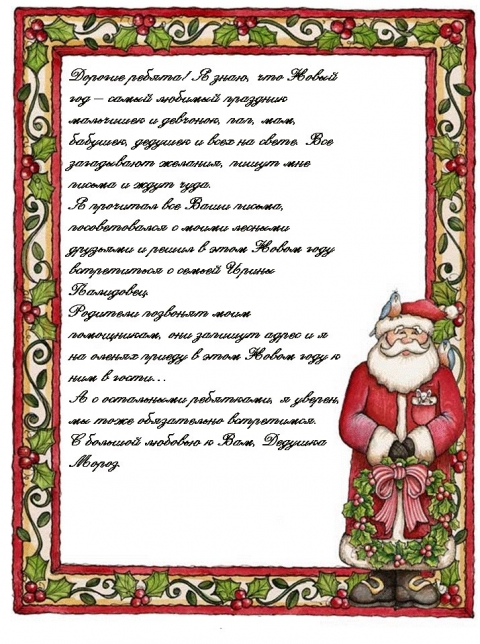 Дорогие ребята! Я знаю, что Новый
год – самый любимый праздник
мальчишек и девчонок, пап, мам,
бабушек, дедушек и всех на свете. Все
загадывают желания, пишут мне
письма и ждут чуда.
Я прочитал все Ваши письма,
посоветовался с моими лесными
друзьями и решил в этом Новом году
встретиться с семьей Ирины
Палидовец.
Родители позвонят моим
помощникам, они запишут адрес и я
на оленях приеду в этом Новом году к
ним в гости...
А с остальными ребятками, я уверен,
мы тоже обязательно встретимся.
С большой любовью к Вам, Дедушка
Мороз.